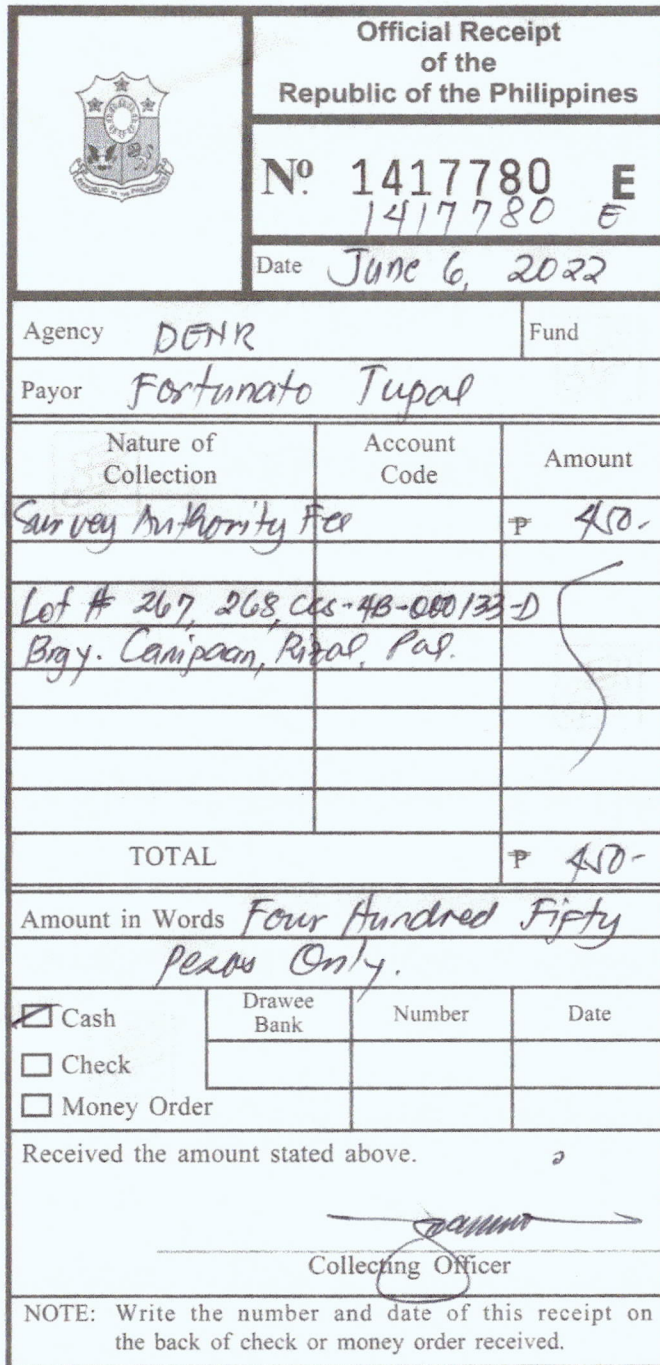 Official Receipt
of the
Republic of the Philippines
REPUBLIC OF THE PHILIPPINES
Nº 1417780 E
1417780 E
Date June 6, 2022
Agency DENR Fund
Payor Fortunato Tupal
Nature of Collection Account Code Amount
Survey Authority Fee ₱ 450-
Lot # 267, 268, CCS-4B-000133-D
Brgy. Canipaan, Rizal, Pal.
TOTAL ₱ 450-
Amount in Words Four Hundred Fifty
Pesos Only.
Cash Drawee Bank Number Date
Check
Money Order
Received the amount stated above.
Collecting Officer
NOTE: Write the number and date of this receipt on
the back of check or money order received.